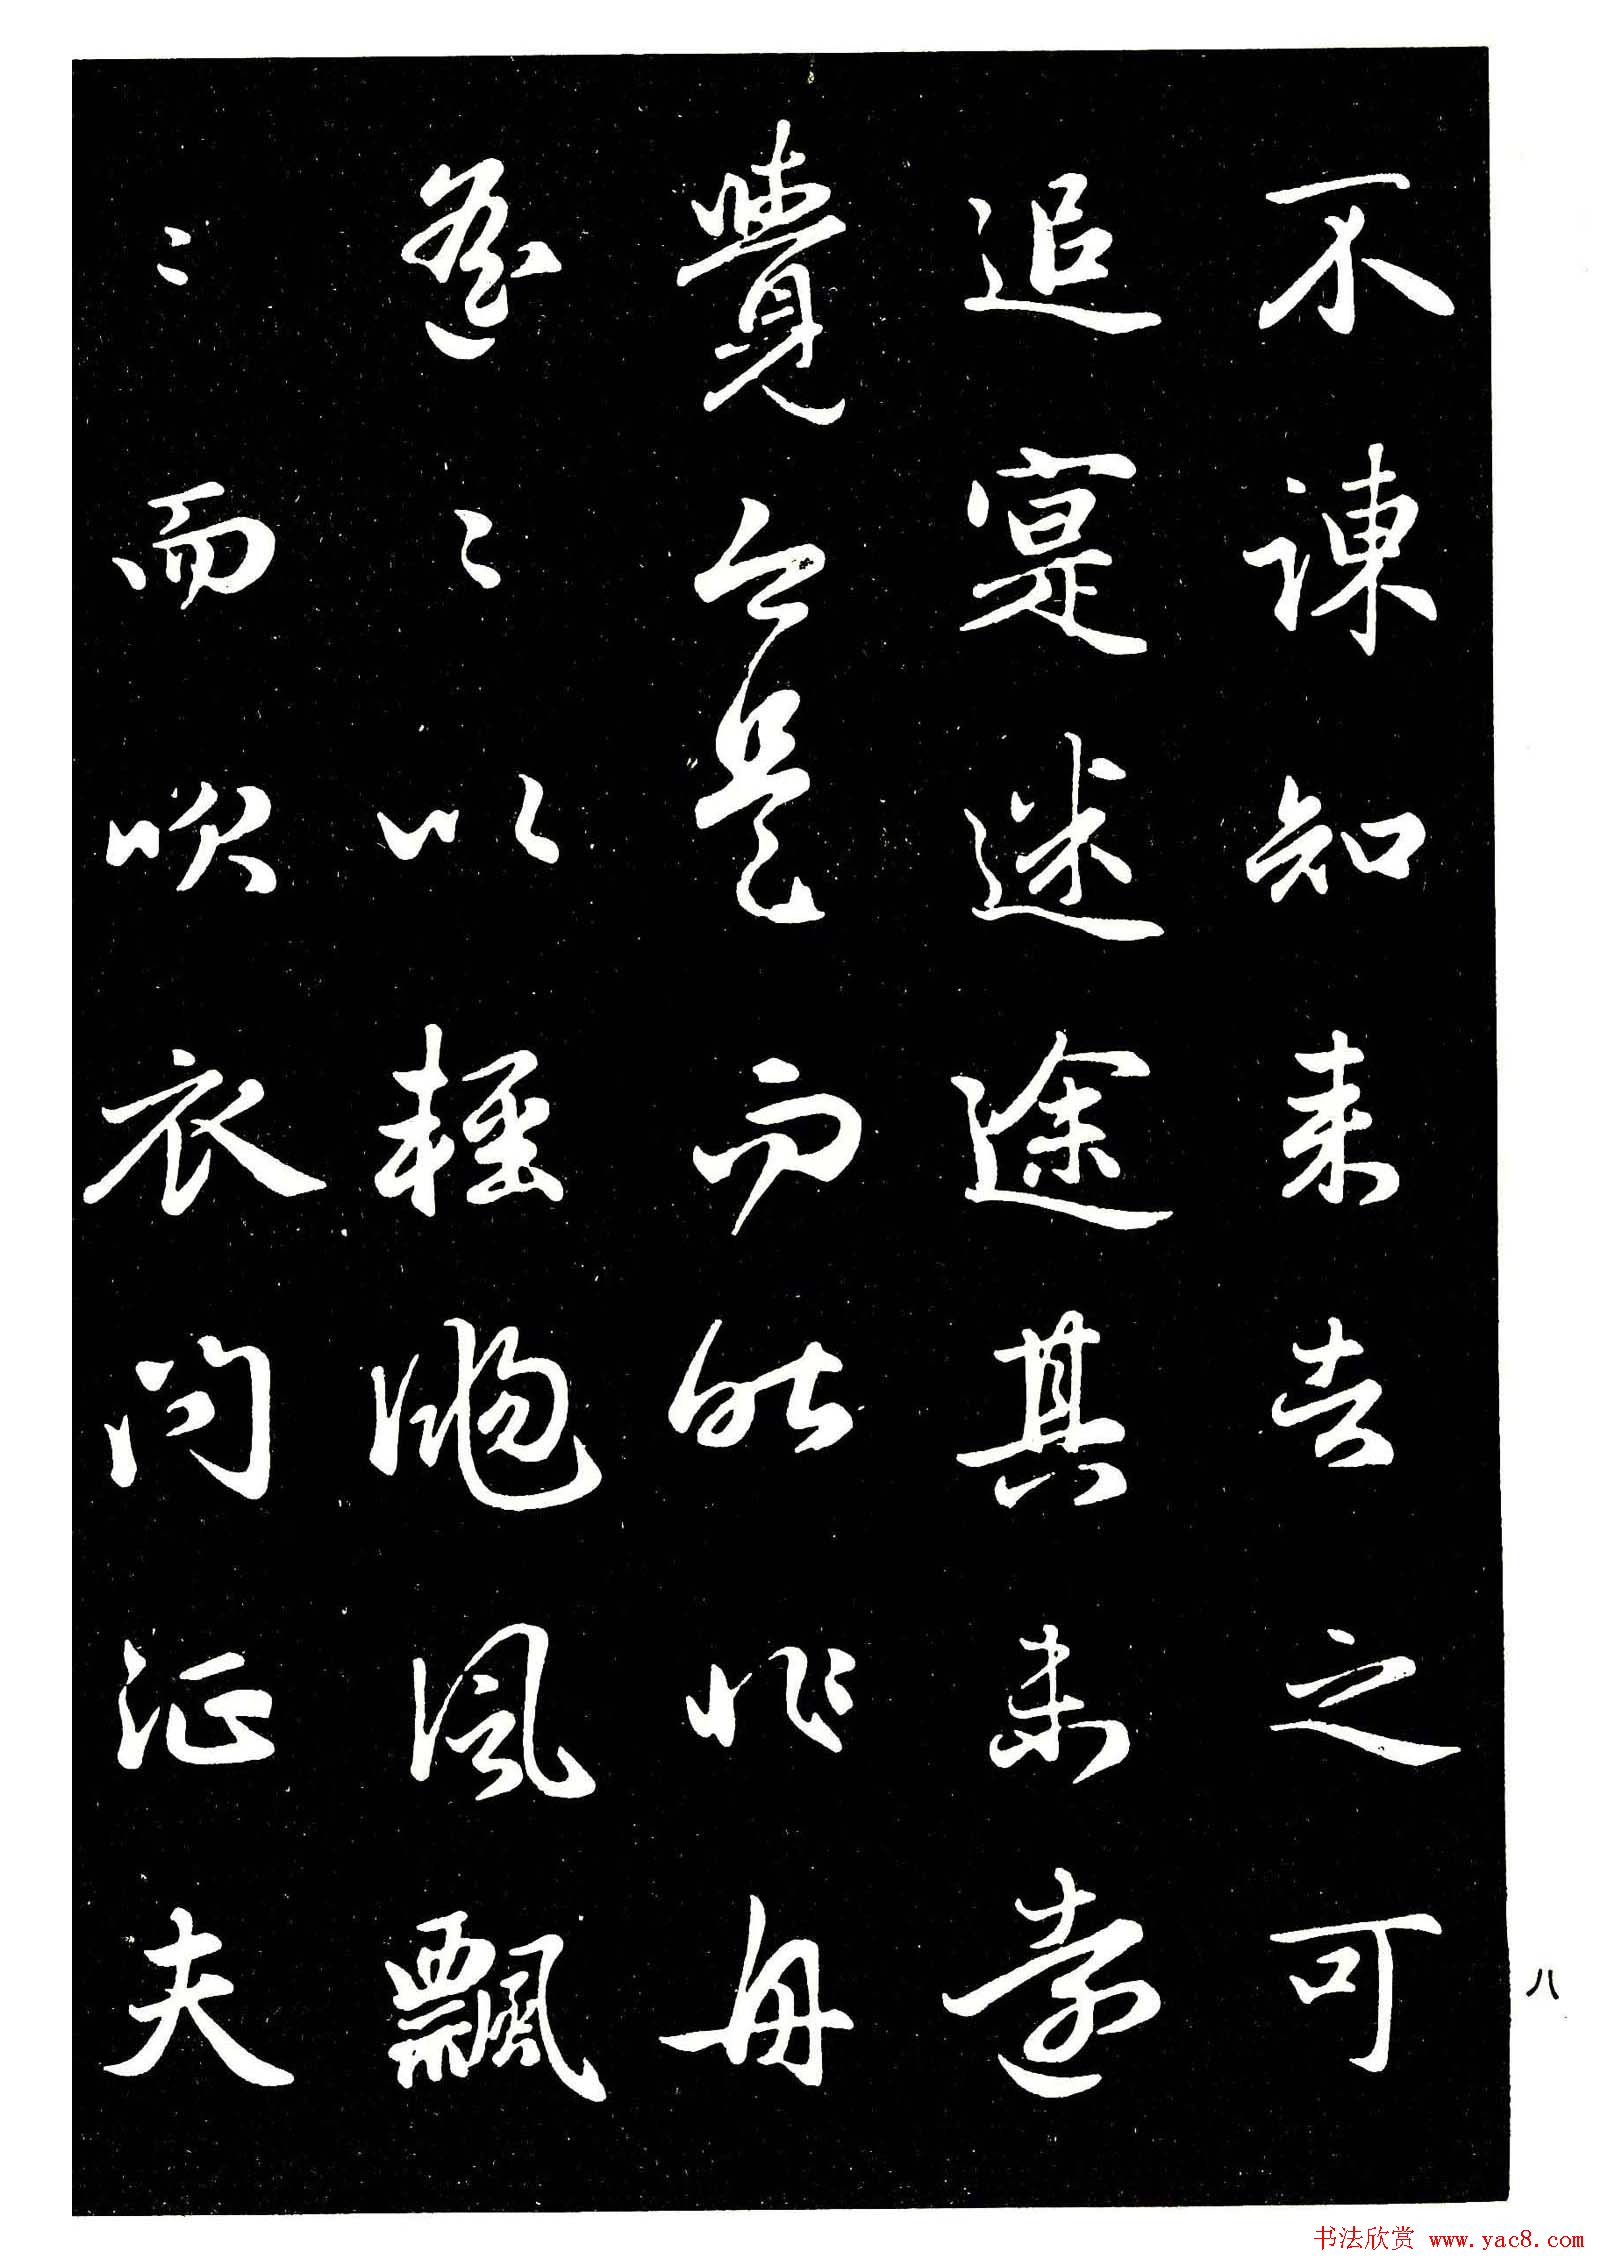 不諫知来者之可
追寔迷途其未遠
覺今是而昨非舟
遥〻以輕颺風飄
〻而吹衣問征夫
八
书法欣赏 www.yac8.com